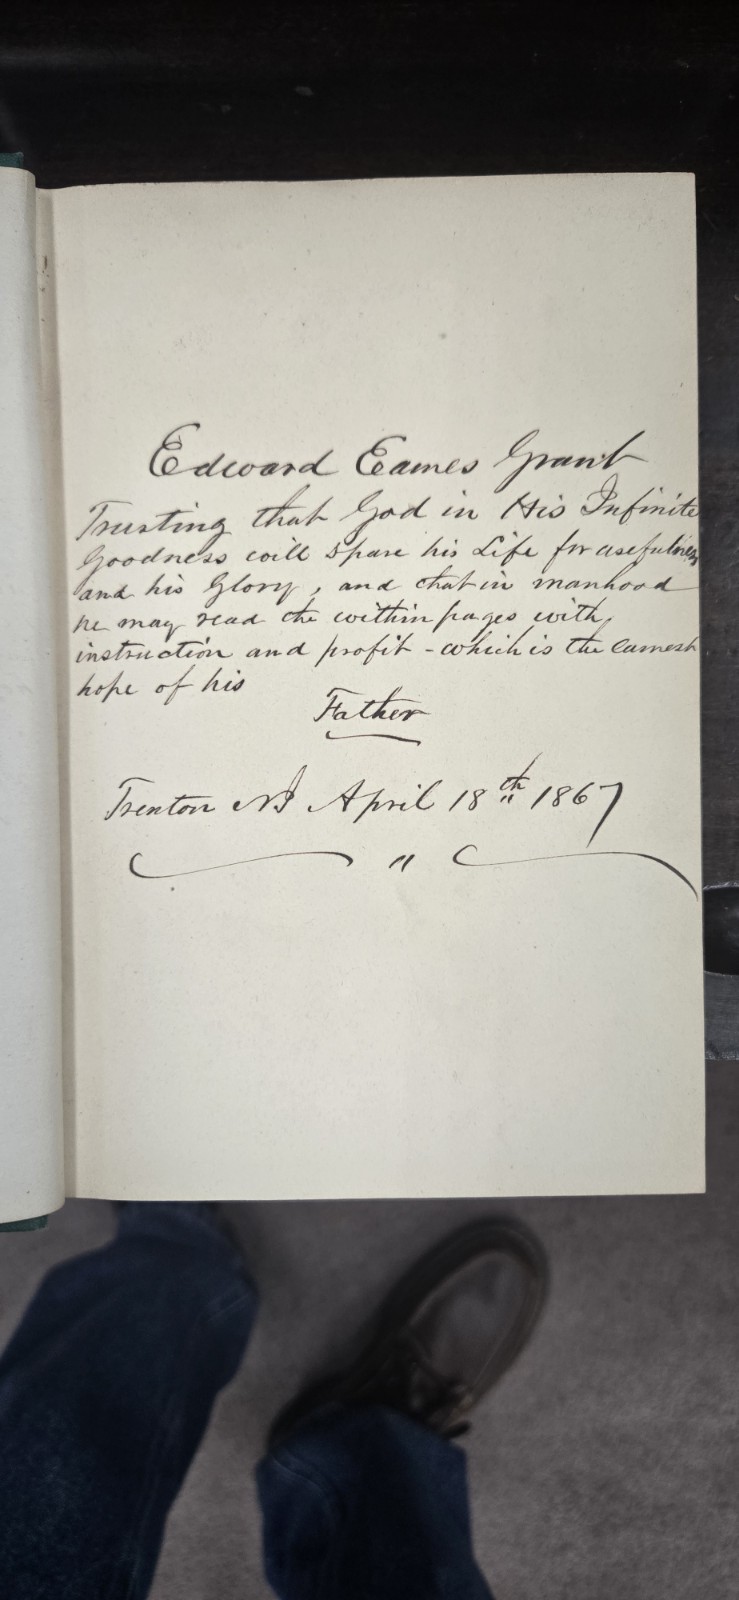 Edward Eames Grant
Trusting that God in His Infinite
Goodness will spare his Life for usefulness
and his Glory, and that in manhood
he may read the within pages with
instruction and profit - which is the earnest
hope of his
Father
Trenton NJ April 18th 1867